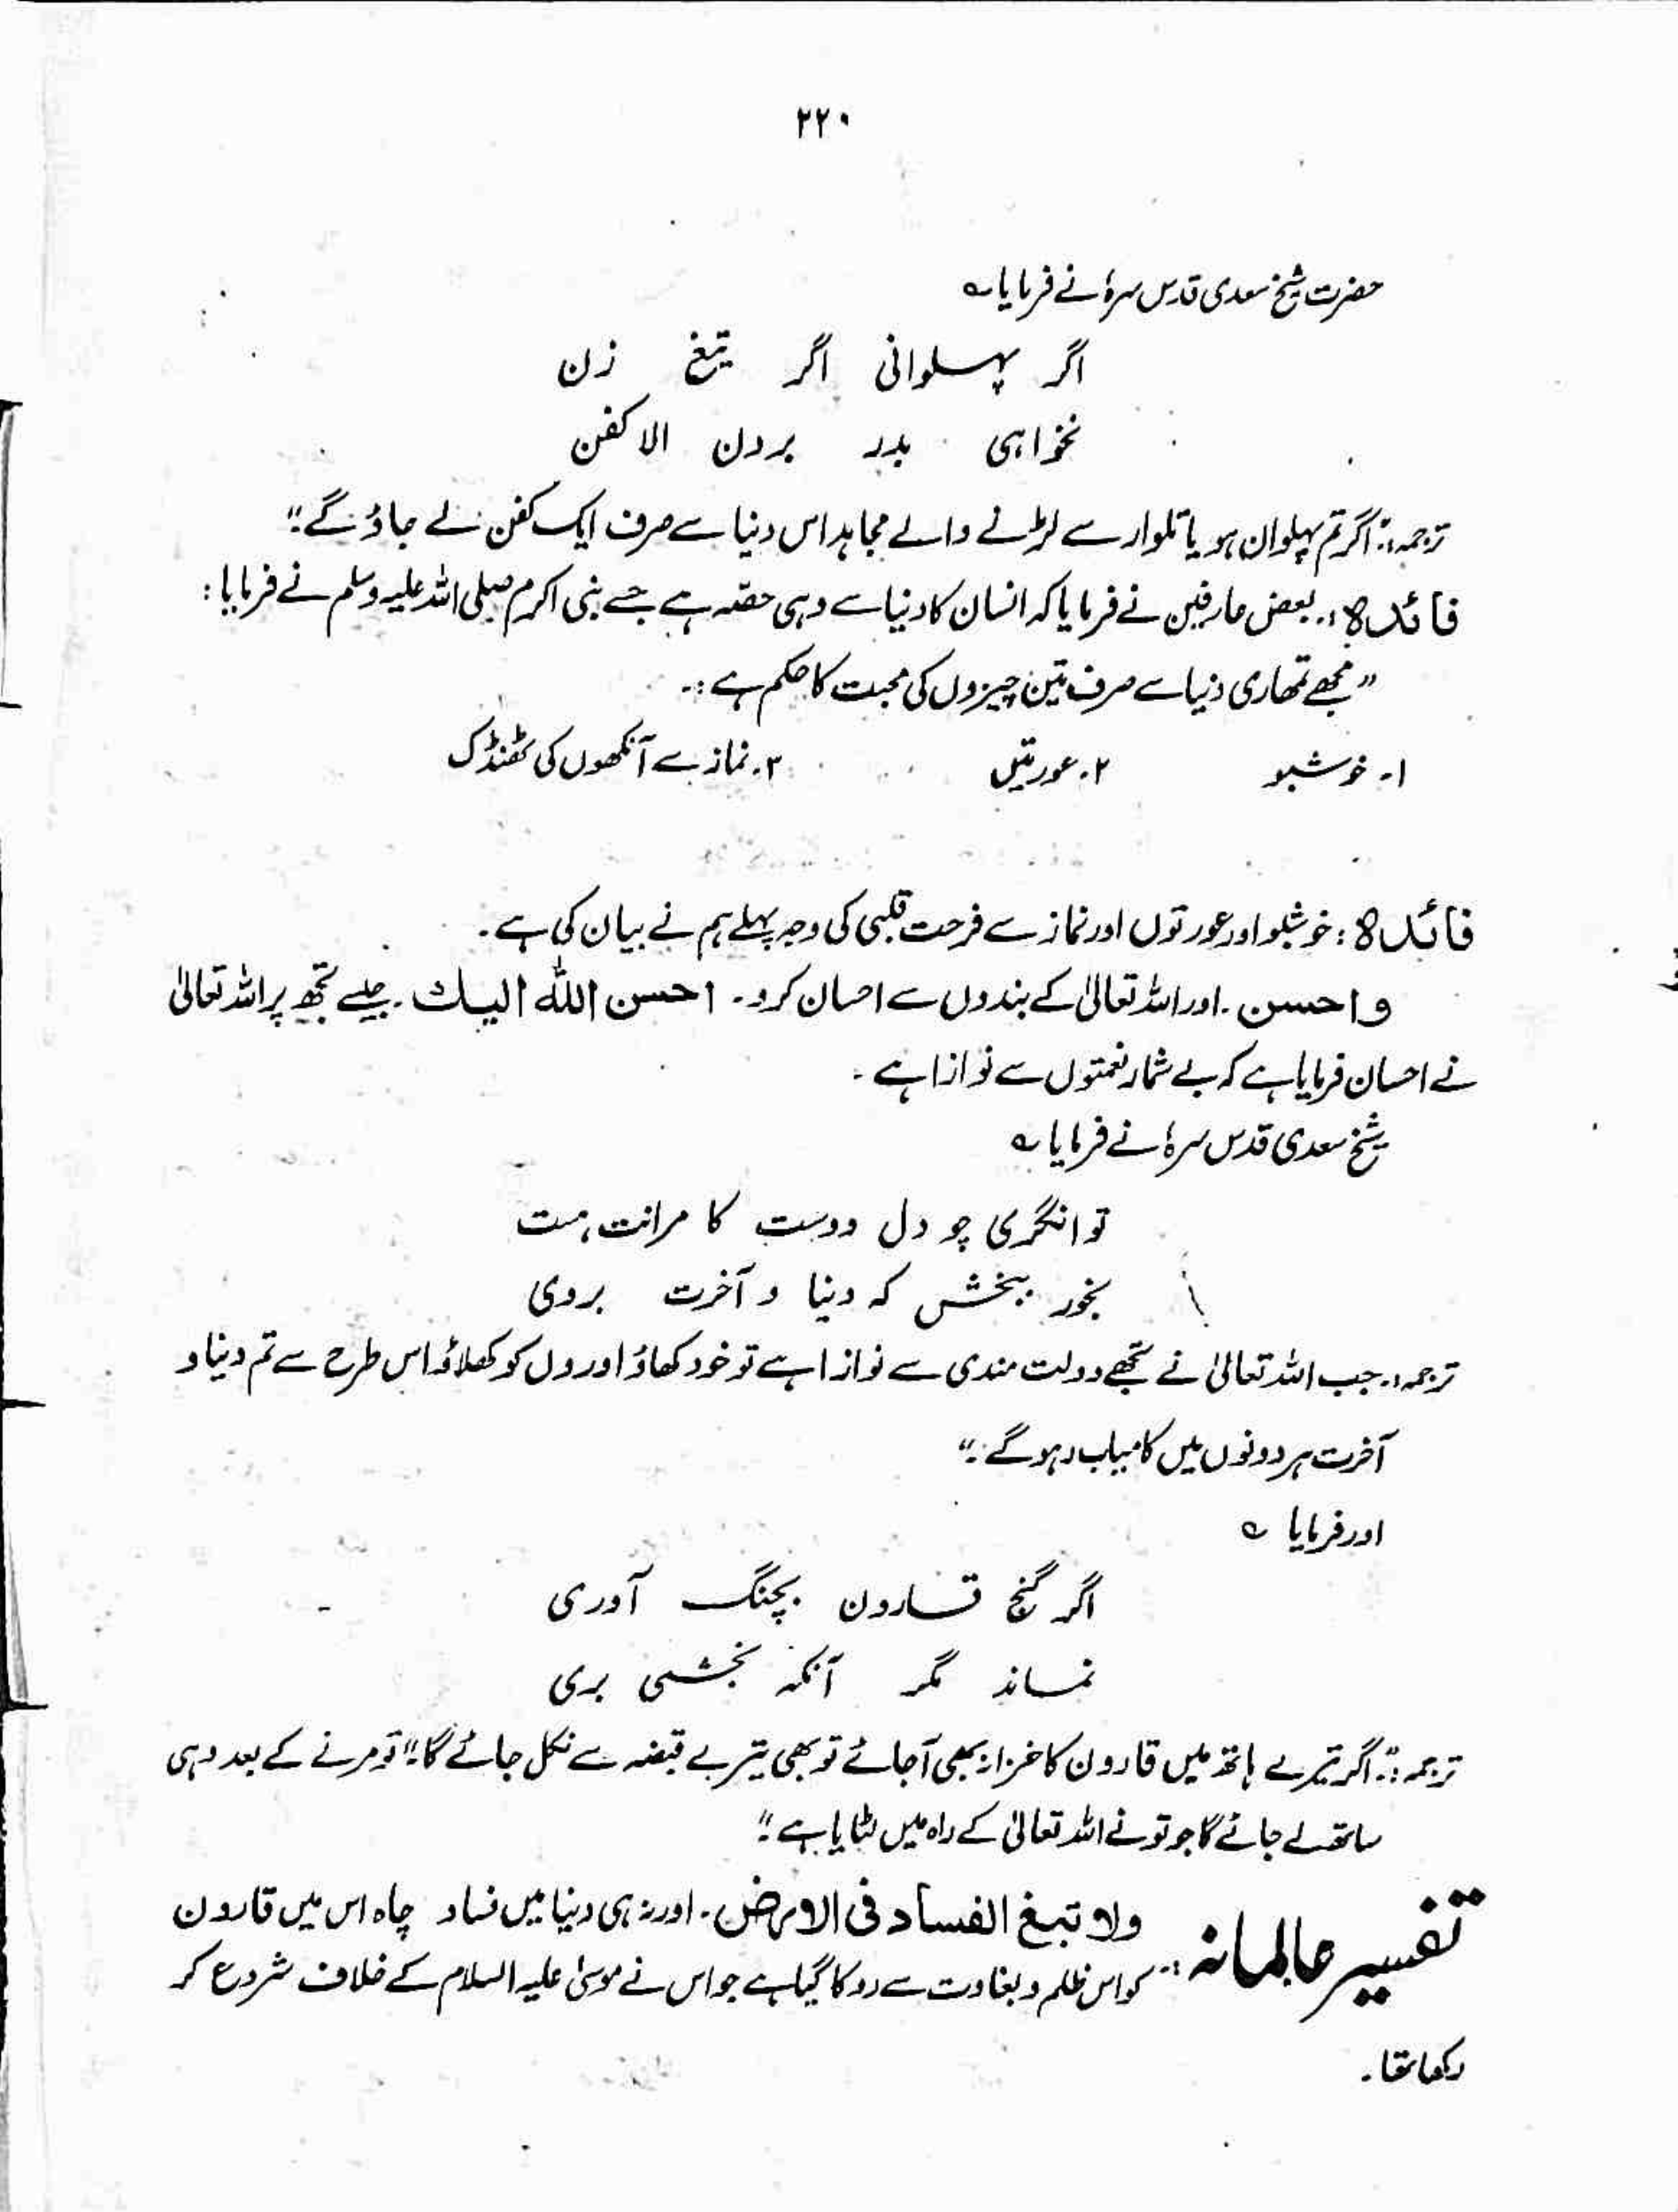 ۲۲۰
حضرت شیخ سعدی قدس سرہٗ نے فرمایا ؎
اگر پہلوانی اگر تیغ زن
نخواہی بدر بردن الا کفن
ترجمہ:۔ اگر تم پہلوان ہو یا تلوار سے لڑنے والے مجاہد اس دنیا سے صرف ایک کفن لے جاؤ گے"
فائدہ:۔ بعض عارفین نے فرمایا کہ انسان کا دنیا سے وہی حصّہ ہے جسے نبی اکرم صلی اللہ علیہ وسلم نے فرمایا:
"مجھے تمھاری دنیا سے صرف تین چیزوں کی محبت کا حکم ہے:۔
۱۔ خوشبو ۲۔ عورتیں ۳۔ نماز سے آنکھوں کی ٹھنڈک
فائدہ: خوشبو اور عورتوں اور نماز سے فرحت قلبی کی وجہ پہلے ہم نے بیان کی ہے۔
واحسن۔ اور اللہ تعالیٰ کے بندوں سے احسان کرو۔ احسن اللّٰه الیك۔ جیسے تجھ پر اللہ تعالیٰ
نے احسان فرمایا ہے کہ بے شمار نعمتوں سے نوازا ہے۔
شیخ سعدی قدس سرہٗ نے فرمایا ؎
توانگری چو دل ودست کامرانت ہست
بخور ببخش کہ دنیا و آخرت بردی
ترجمہ:۔ جب اللہ تعالیٰ نے تجھے دولت مندی سے نوازا ہے تو خود کھاؤ اوروں کو کھلاؤ اس طرح سے تم دنیا و
آخرت ہر دونوں میں کامیاب رہو گے۔"
اور فرمایا ؎
اگر گنج قارون بچنگ آوری
نماند مگر آنکہ بخشی بری
ترجمہ:۔ اگر تیرے ہاتھ میں قارون کا خزانہ بھی آجائے تو بھی تیرے قبضہ سے نکل جائے گا" تو مرنے کے بعد وہی
ساتھ لے جائے گا جو تو نے اللہ تعالیٰ کے راہ میں لٹایا ہے"
تفسیر عالمانہ:۔ ولا تبغ الفساد فی الارض۔ اور نہ ہی دنیا میں فساد چاہ اس میں قارون
کو اس ظلم و بغاوت سے روکا گیا ہے جو اس نے موسیٰ علیہ السلام کے خلاف شروع کر
رکھا تھا۔